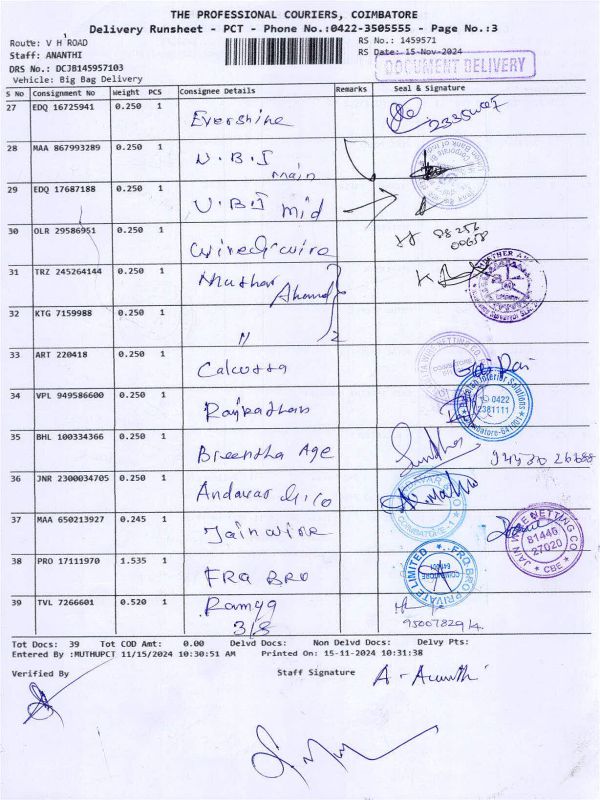 THE PROFESSIONAL COURIERS, COIMBATORE
Delivery Runsheet - PCT - Phone No.:0422-3505555 - Page No.:3
Route: V H ROAD
RS No.: 1459571
Staff: ANANTHI
RS Date: 15-Nov-2024
DRS No.: DCJB145957103
DOCUMENT DELIVERY
Vehicle: Big Bag Delivery
S No Consignment No Weight PCS Consignee Details Remarks Seal & Signature
27 EDQ 16725941 0.250 1 Evershine
28 MAA 867993289 0.250 1 U.B.I main
29 EDQ 17687188 0.250 1 U.B.I mid
30 OLR 29586951 0.250 1
31 TRZ 245264144 0.250 1 Muthar Ahamd
32 KTG 7159988 0.250 1 " 2
33 ART 220418 0.250 1 Calcutta
34 VPL 949586600 0.250 1 Rajkadhan
Interior Solutions
0422
2381111
35 BHL 100334366 0.250 1 Breentha Age
36 JNR 2300034705 0.250 1 Andavar &co
COIMBATORE-1
37 MAA 650213927 0.245 1 Jain wire
JAIN WIRE NETTING CO.
81446
27020
CBE
38 PRO 17111970 1.535 1 FRQ BRO
FRQ BRO PRIVATE LIMITED
COIMBATORE
641001
39 TVL 7266601 0.520 1 Ramya
3/8
Tot Docs: 39 Tot COD Amt: 0.00 Delvd Docs: Non Delvd Docs: Delvy Pts:
Entered By :MUTHUPCT 11/15/2024 10:30:51 AM Printed On: 15-11-2024 10:31:38
Verified By
Staff Signature A. Ananthi